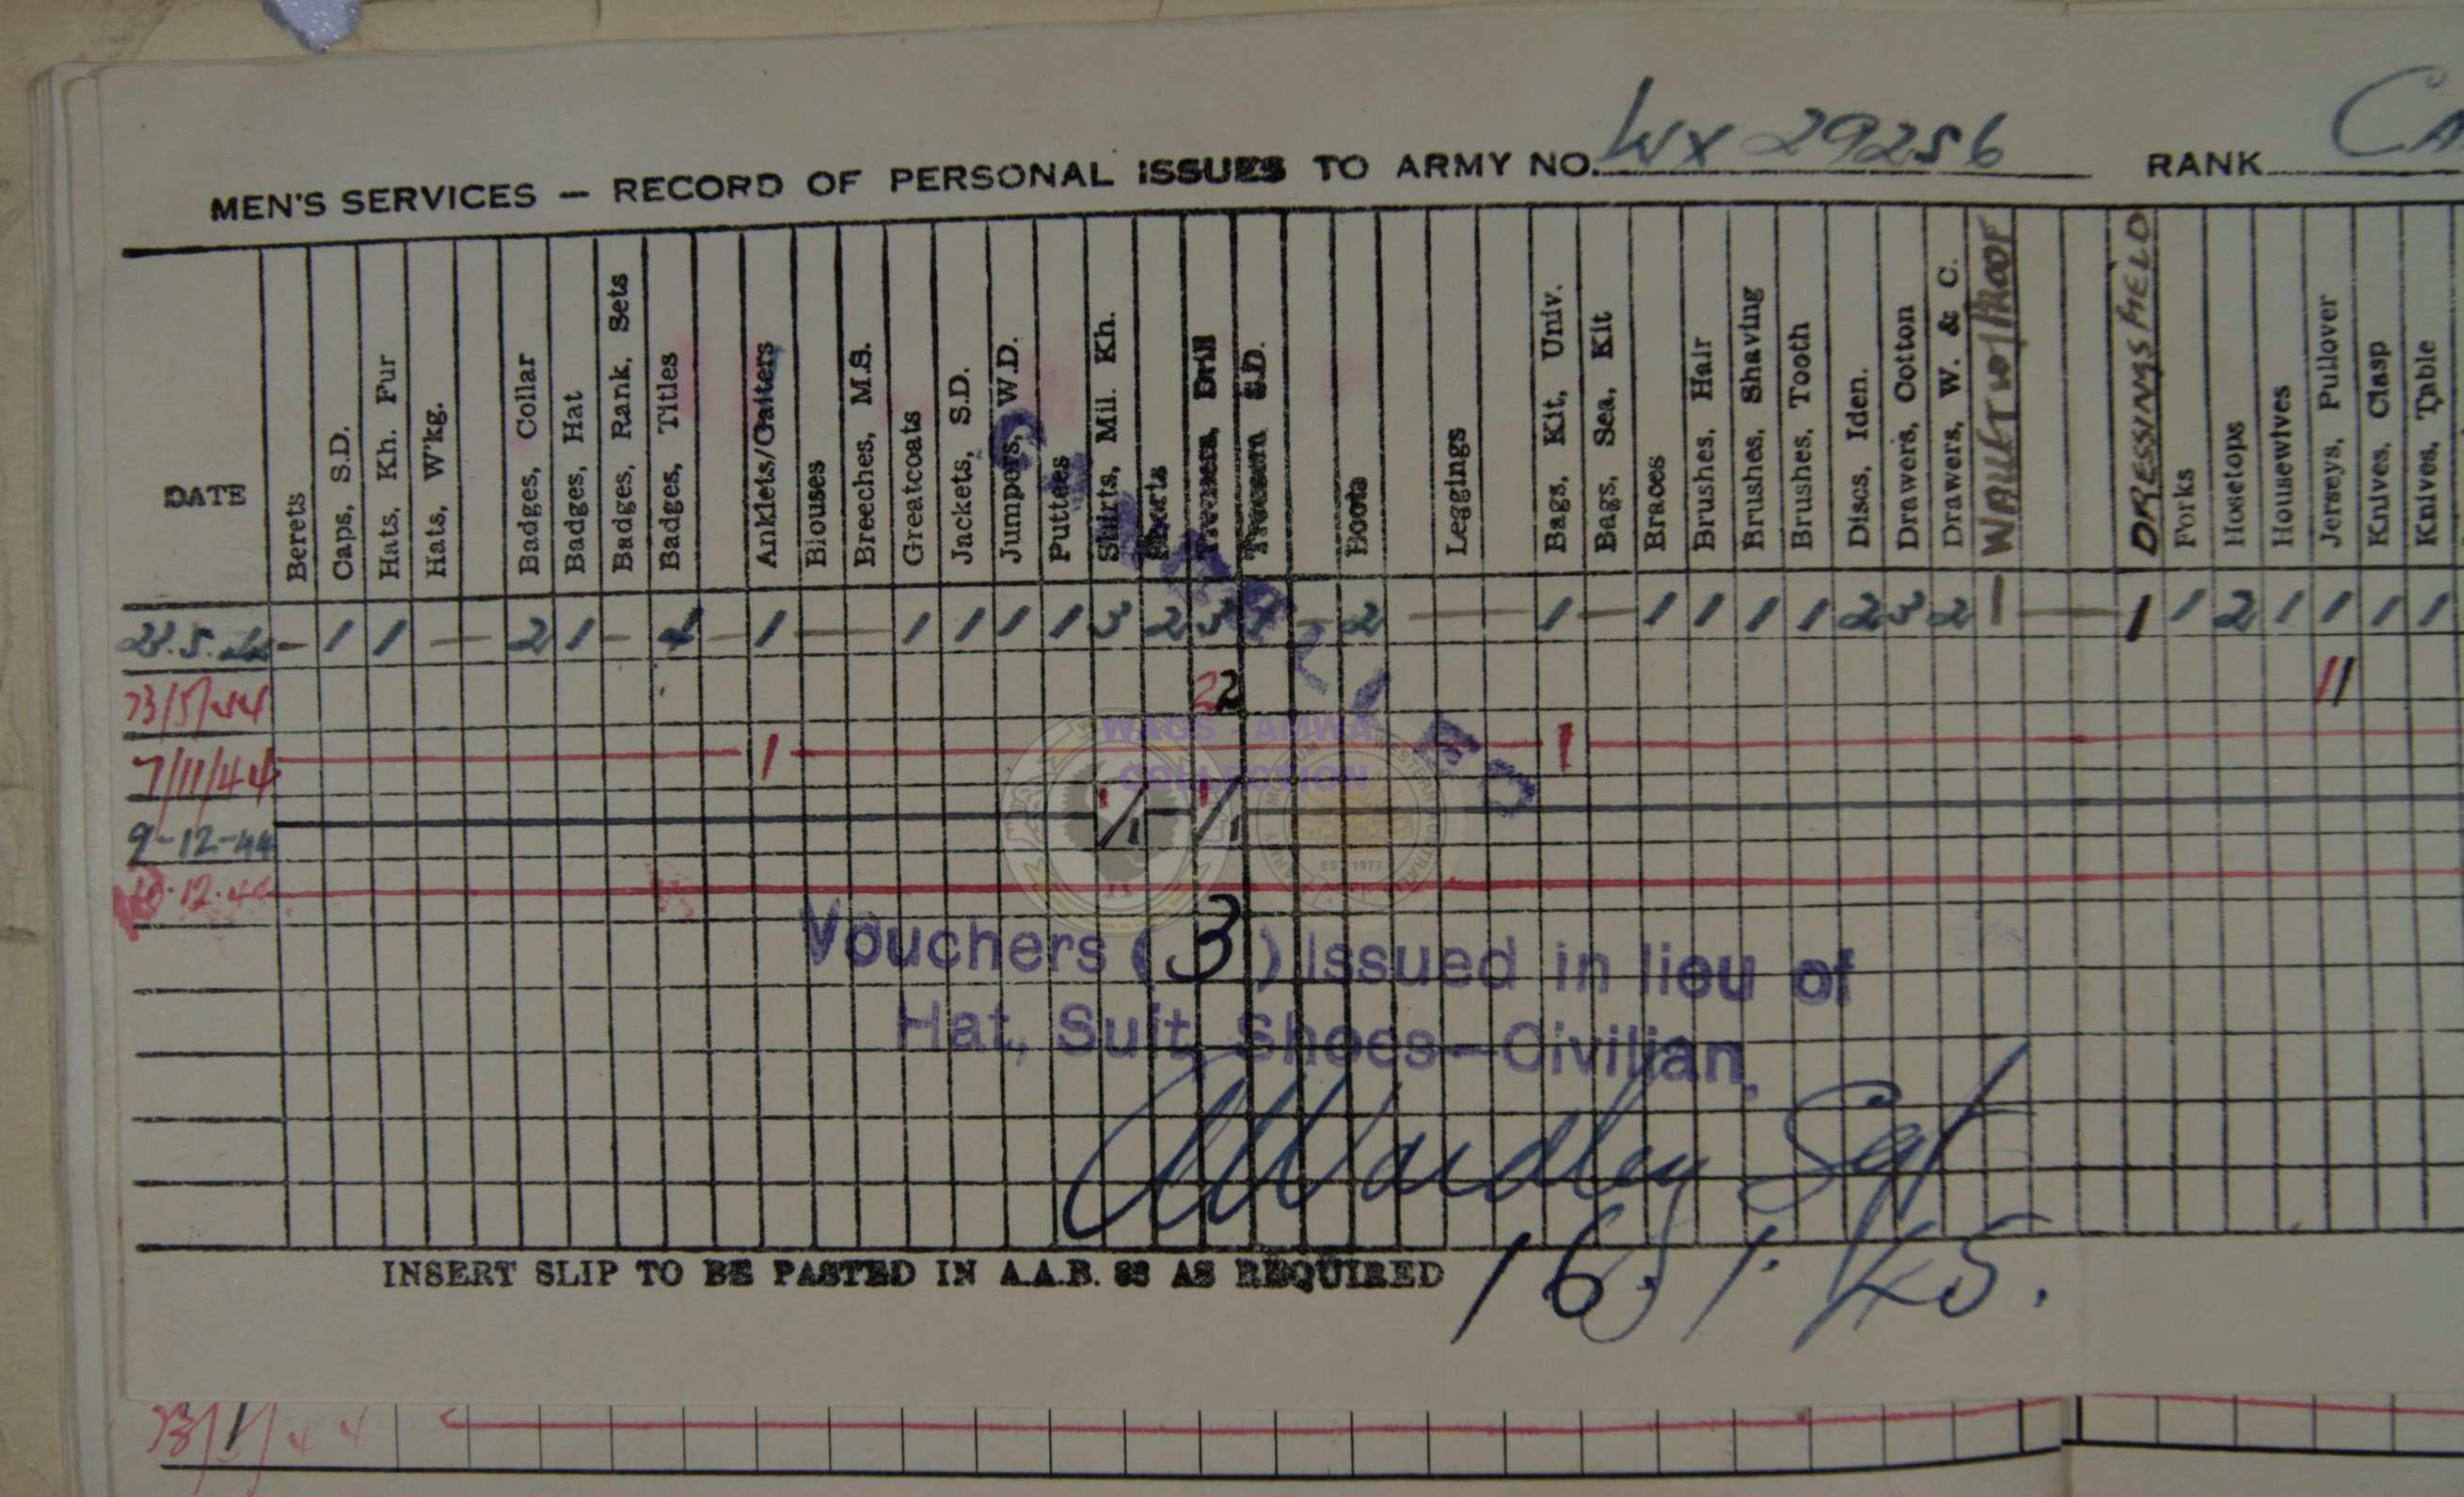 MEN'S SERVICES — RECORD OF PERSONAL ISSUES TO ARMY NO. WX 29256 RANK CA
DATE
Berets
Caps, S.D.
Hats, Kh. Fur
Hats, W'kg.
Badges, Collar
Badges, Hat
Badges, Rank, Sets
Badges, Titles
Anklets/Gaiters
Blouses
Breeches, M.S.
Greatcoats
Jackets, S.D.
Jumpers, W.D.
Puttees
Shirts, Mil. Kh.
Shorts
Trousers, Drill
Trousers S.D.
Boots
Leggings
Bags, Kit, Univ.
Bags, Sea, Kit
Braces
Brushes, Hair
Brushes, Shaving
Brushes, Tooth
Discs, Iden.
Drawers, Cotton
Drawers, W. & C.
WALLET W/PROOF
DRESSINGS FIELD
Forks
Hosetops
Housewives
Jerseys, Pullover
Knives, Clasp
Knives, Table
— 1 1 — 2 1 — — 1 — 1 1 1 1 3 2 3 — 2 — 1 — 1 1 1 1 2 3 2 — — 1 1 2 1 1 1 1
22 11
7/11/44 1 1
9-12-44 1/1 1/1
12.44
WAGS - AMWA
COLLECTION
EST 1977
Vouchers (3) Issued in lieu of
Hat, Suit, Shoes—Civilian.
Wardley Sgt
16.1.45.
INSERT SLIP TO BE PASTED IN A.A.B. 83 AS REQUIRED